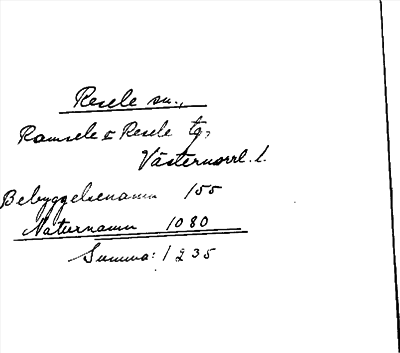 Resele sn.,
Ramsele o Resele tg,
Västernorrl. l.
Bebyggelsenamn 155
Naturnamn 1080
Summa: 1235